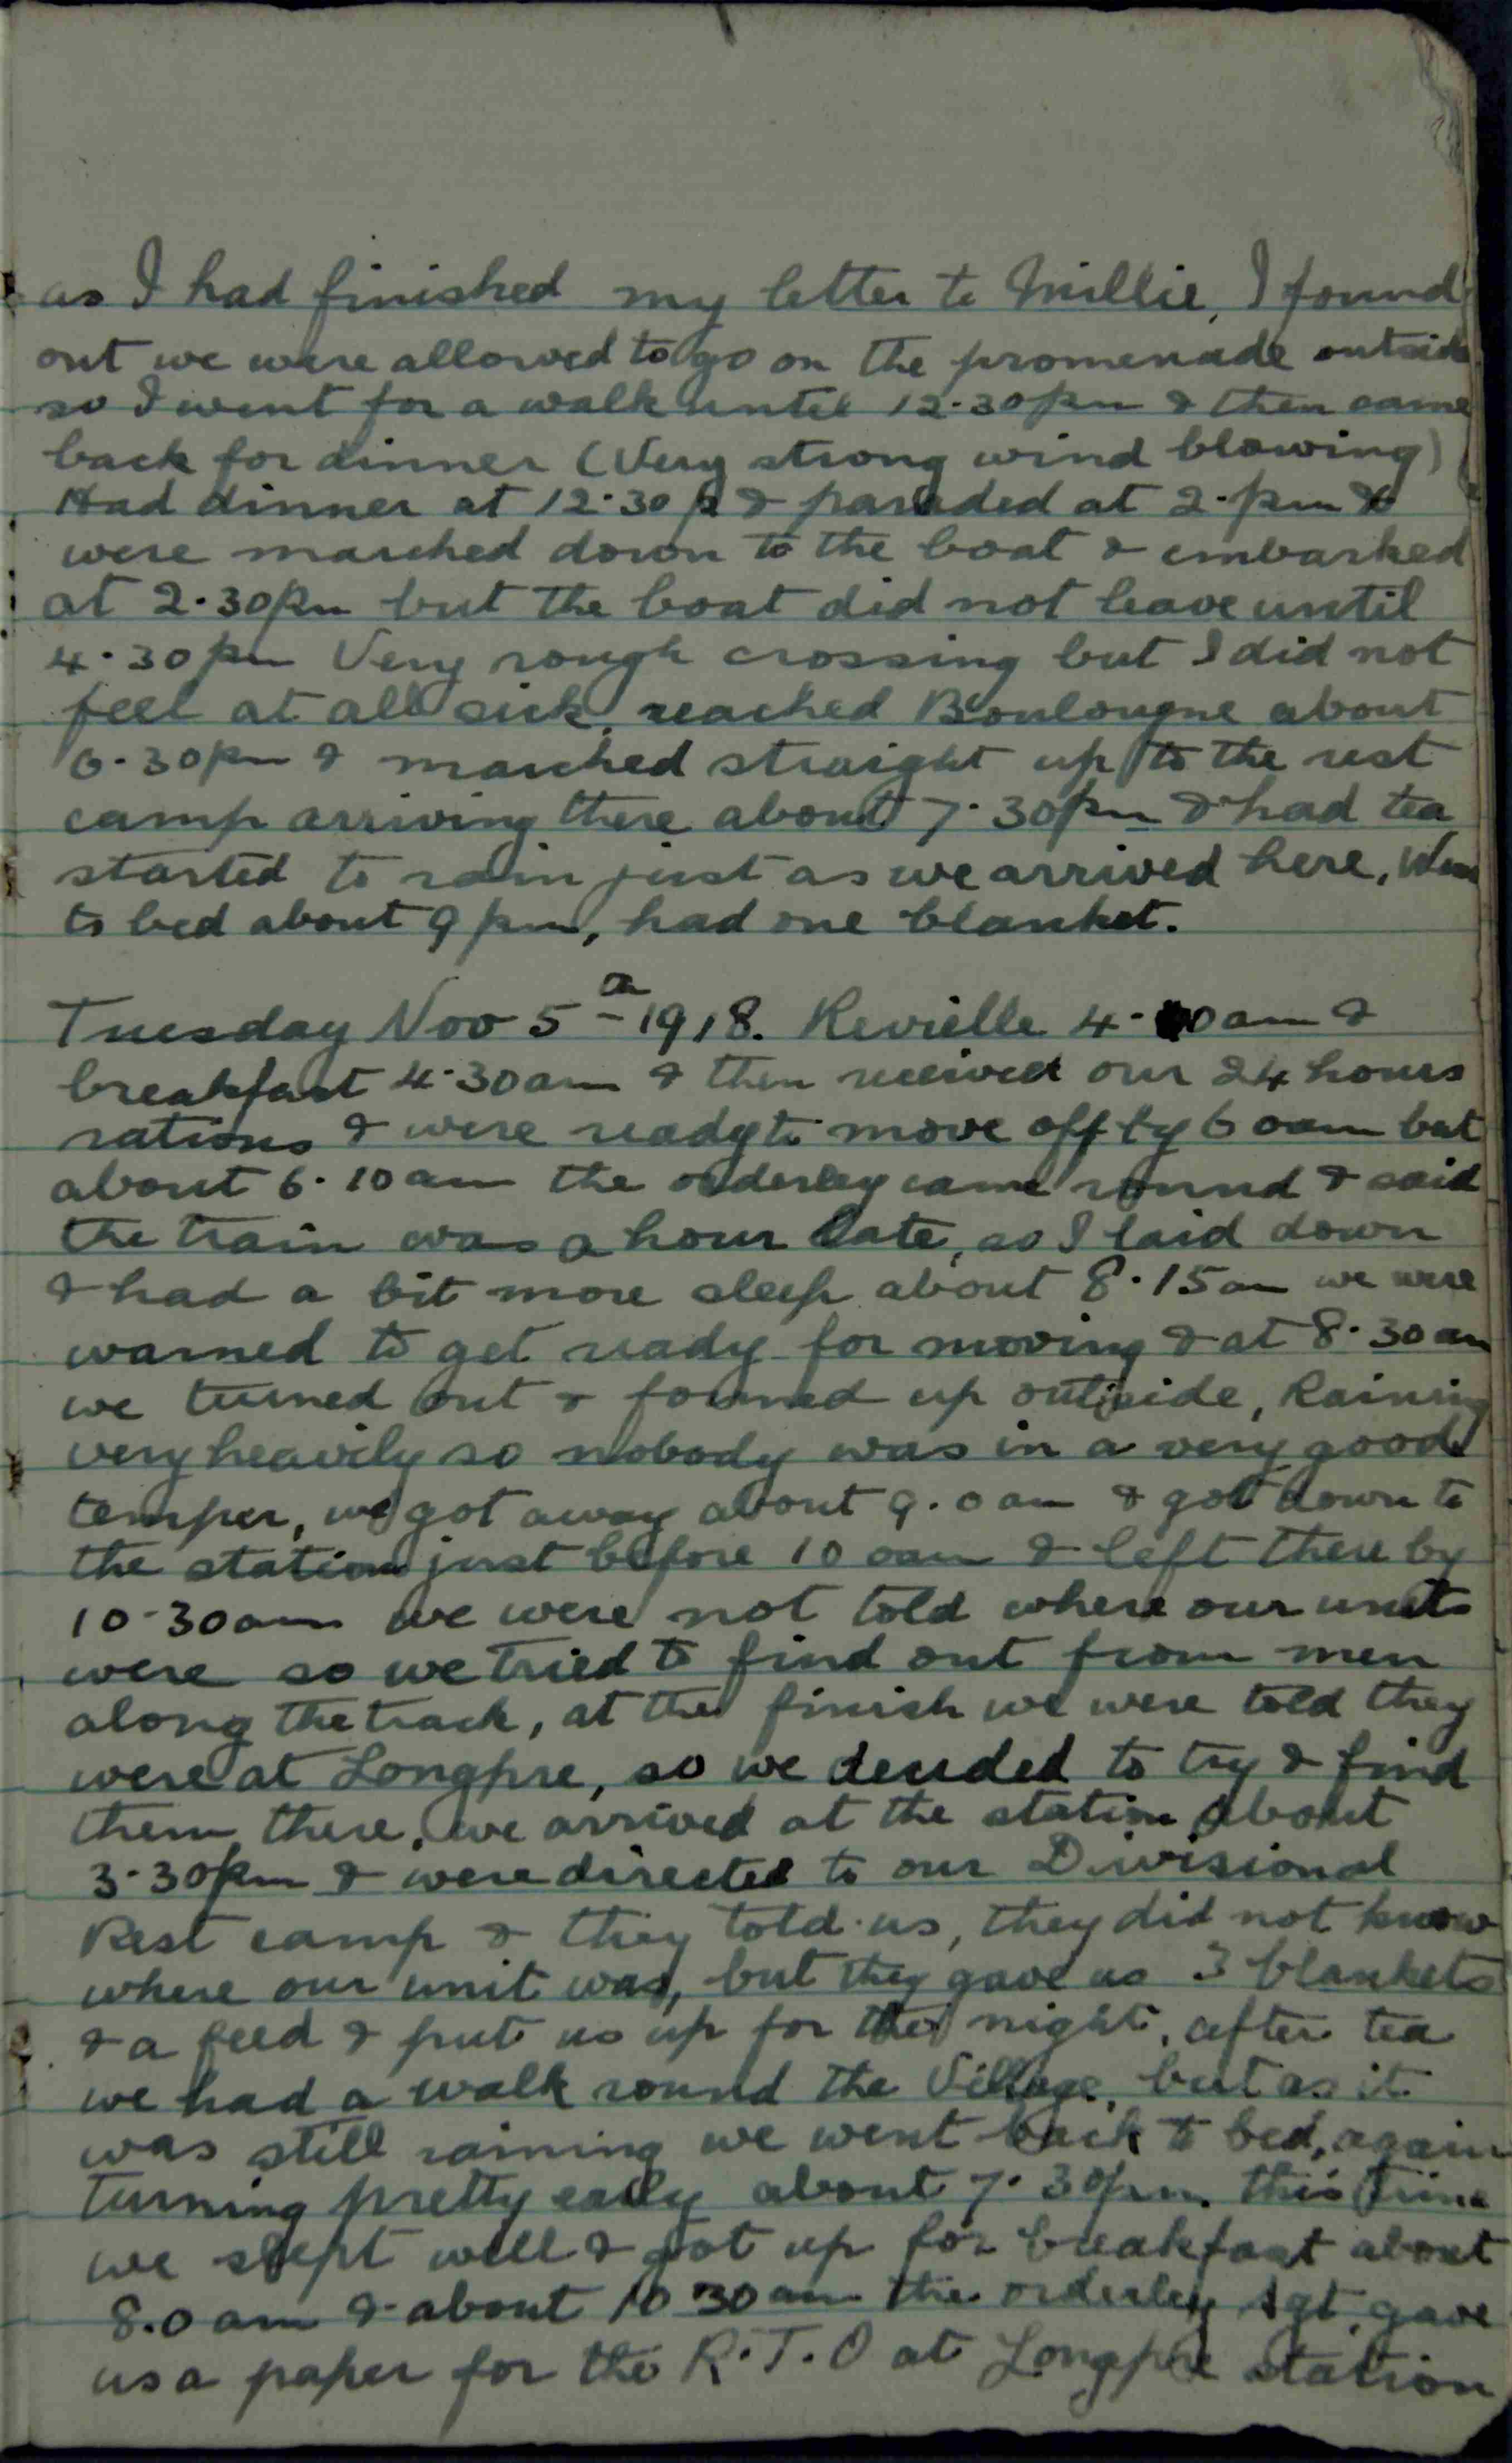 as I had finished my letter to Millie, I found
out we were allowed to go on the promenade outside
so I went for a walk until 12.30pm & then came
back for dinner (Very strong wind blowing)
Had dinner at 12.30 p & paraded at 2.pm &
were marched down to the boat & embarked
at 2.30pm but the boat did not leave until
4.30pm Very rough crossing but I did not
feel at all sick, reached Boulougne about
6.30pm & marched straight up to the rest
camp arriving there about 7.30pm & had tea
started to rain just as we arrived here, Went
to bed about 9 pm, had one blanket.
Tuesday Nov 5th 1918. Revielle 4.0am &
breakfast 4.30am & then received our 24 hours
rations & were ready to move off by 6 oam but
about 6.10am the orderley came round & said
the train was a hour late, so I laid down
& had a bit more sleep about 8.15am we were
warned to get ready for moving & at 8.30am
we turned out & formed up outside, Raining
very heavily so nobody was in a very good
temper, we got away about 9.0am & got down to
the station just before 10 oam & left there by
10.30am we were not told where our units
were so we tried to find out from men
along the track, at the finish we were told they
were at Longpre, so we decided to try & find
them there, we arrived at the station about
3.30pm & were directed to our Divisional
Rest camp & they told us, they did not know
where our unit was, but they gave us 3 blankets
& a feed & put us up for the night, after tea
we had a walk round the Village, but as it
was still raining we went back to bed, again
turning pretty early about 7.30pm. this time
we slept well & got up for breakfast about
8.0am & about 10 30am the orderley Sgt, gave
us a paper for the R.T.O at Longpre station